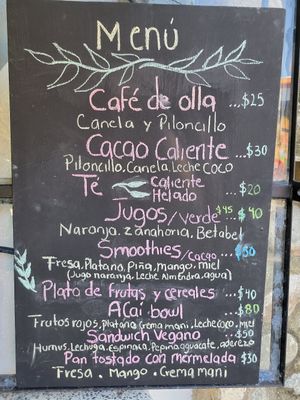 Menú
Café de olla ...$25
Canela y Piloncillo
Cacao Caliente ...$30
Piloncillo, Canela, Leche coco
Té caliente
Helado ...$20
Jugos/verde $45 ..$40
Naranja. Zanahoria, Betabel
Smoothies/cacao ...$50
Fresa, Platano, Piña, mango, miel
(Jugo naranja, leche Almendra, agua)
Plato de frutas y cereales ..$40
Acai bowl ...$80
Frutos rojos, Platano, Crema mani, Leche coco, miel
Sandwich Vegano ...$50
Humus, Lechuga, Espinaca, Pepino, aguacate, aderezo
Pan tostado con mermelada $30
Fresa. Mango. Crema mani